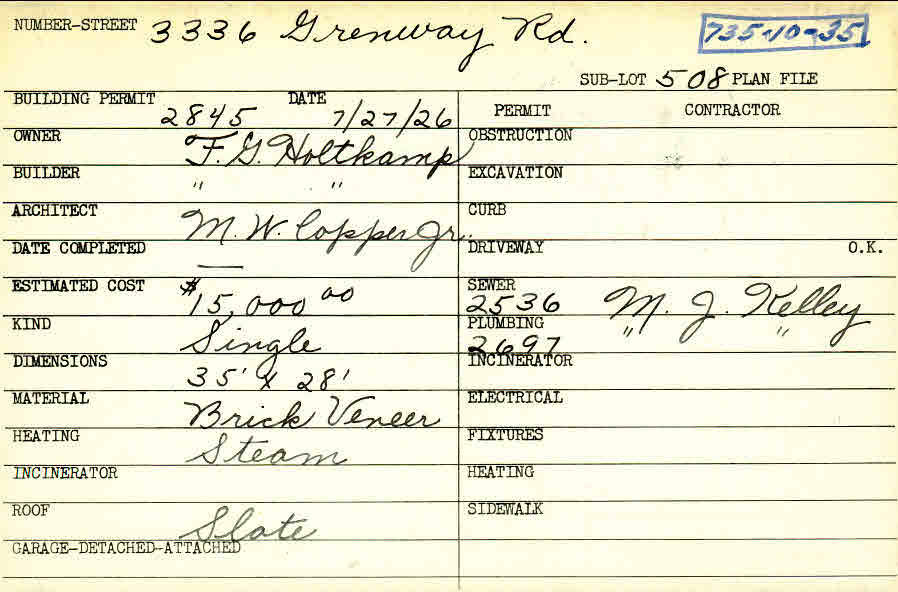 NUMBER-STREET 3336 Grenway Rd. 735-10-35
SUB-LOT 508 PLAN FILE
BUILDING PERMIT 2845 DATE 7/27/26 PERMIT CONTRACTOR
OWNER F. G. Holtkamp OBSTRUCTION
BUILDER " " EXCAVATION
ARCHITECT M. W. Copper Jr. CURB
DATE COMPLETED — DRIVEWAY O.K.
ESTIMATED COST $15,000 00 SEWER 2536 M. J. Kelley
KIND Single PLUMBING 2697 " "
DIMENSIONS 35' x 28' INCINERATOR
MATERIAL Brick Veneer ELECTRICAL
HEATING Steam FIXTURES
INCINERATOR HEATING
ROOF Slate SIDEWALK
GARAGE-DETACHED-ATTACHED